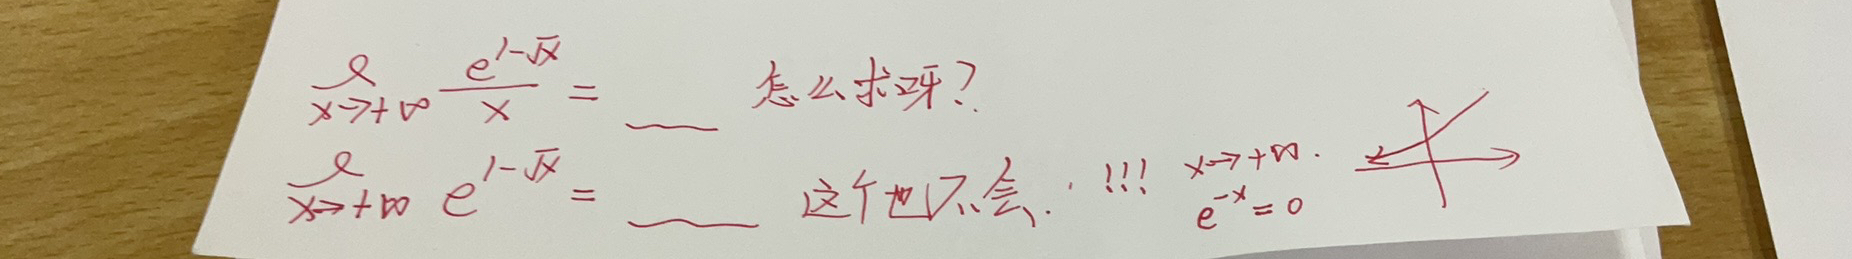 ℓ x→+∞ e^{1-√x}/x = ___ 怎么求呀?
ℓ x→+∞ e^{1-√x} = ___ 这个也不会.!!! x→+∞. e^{-x}=0